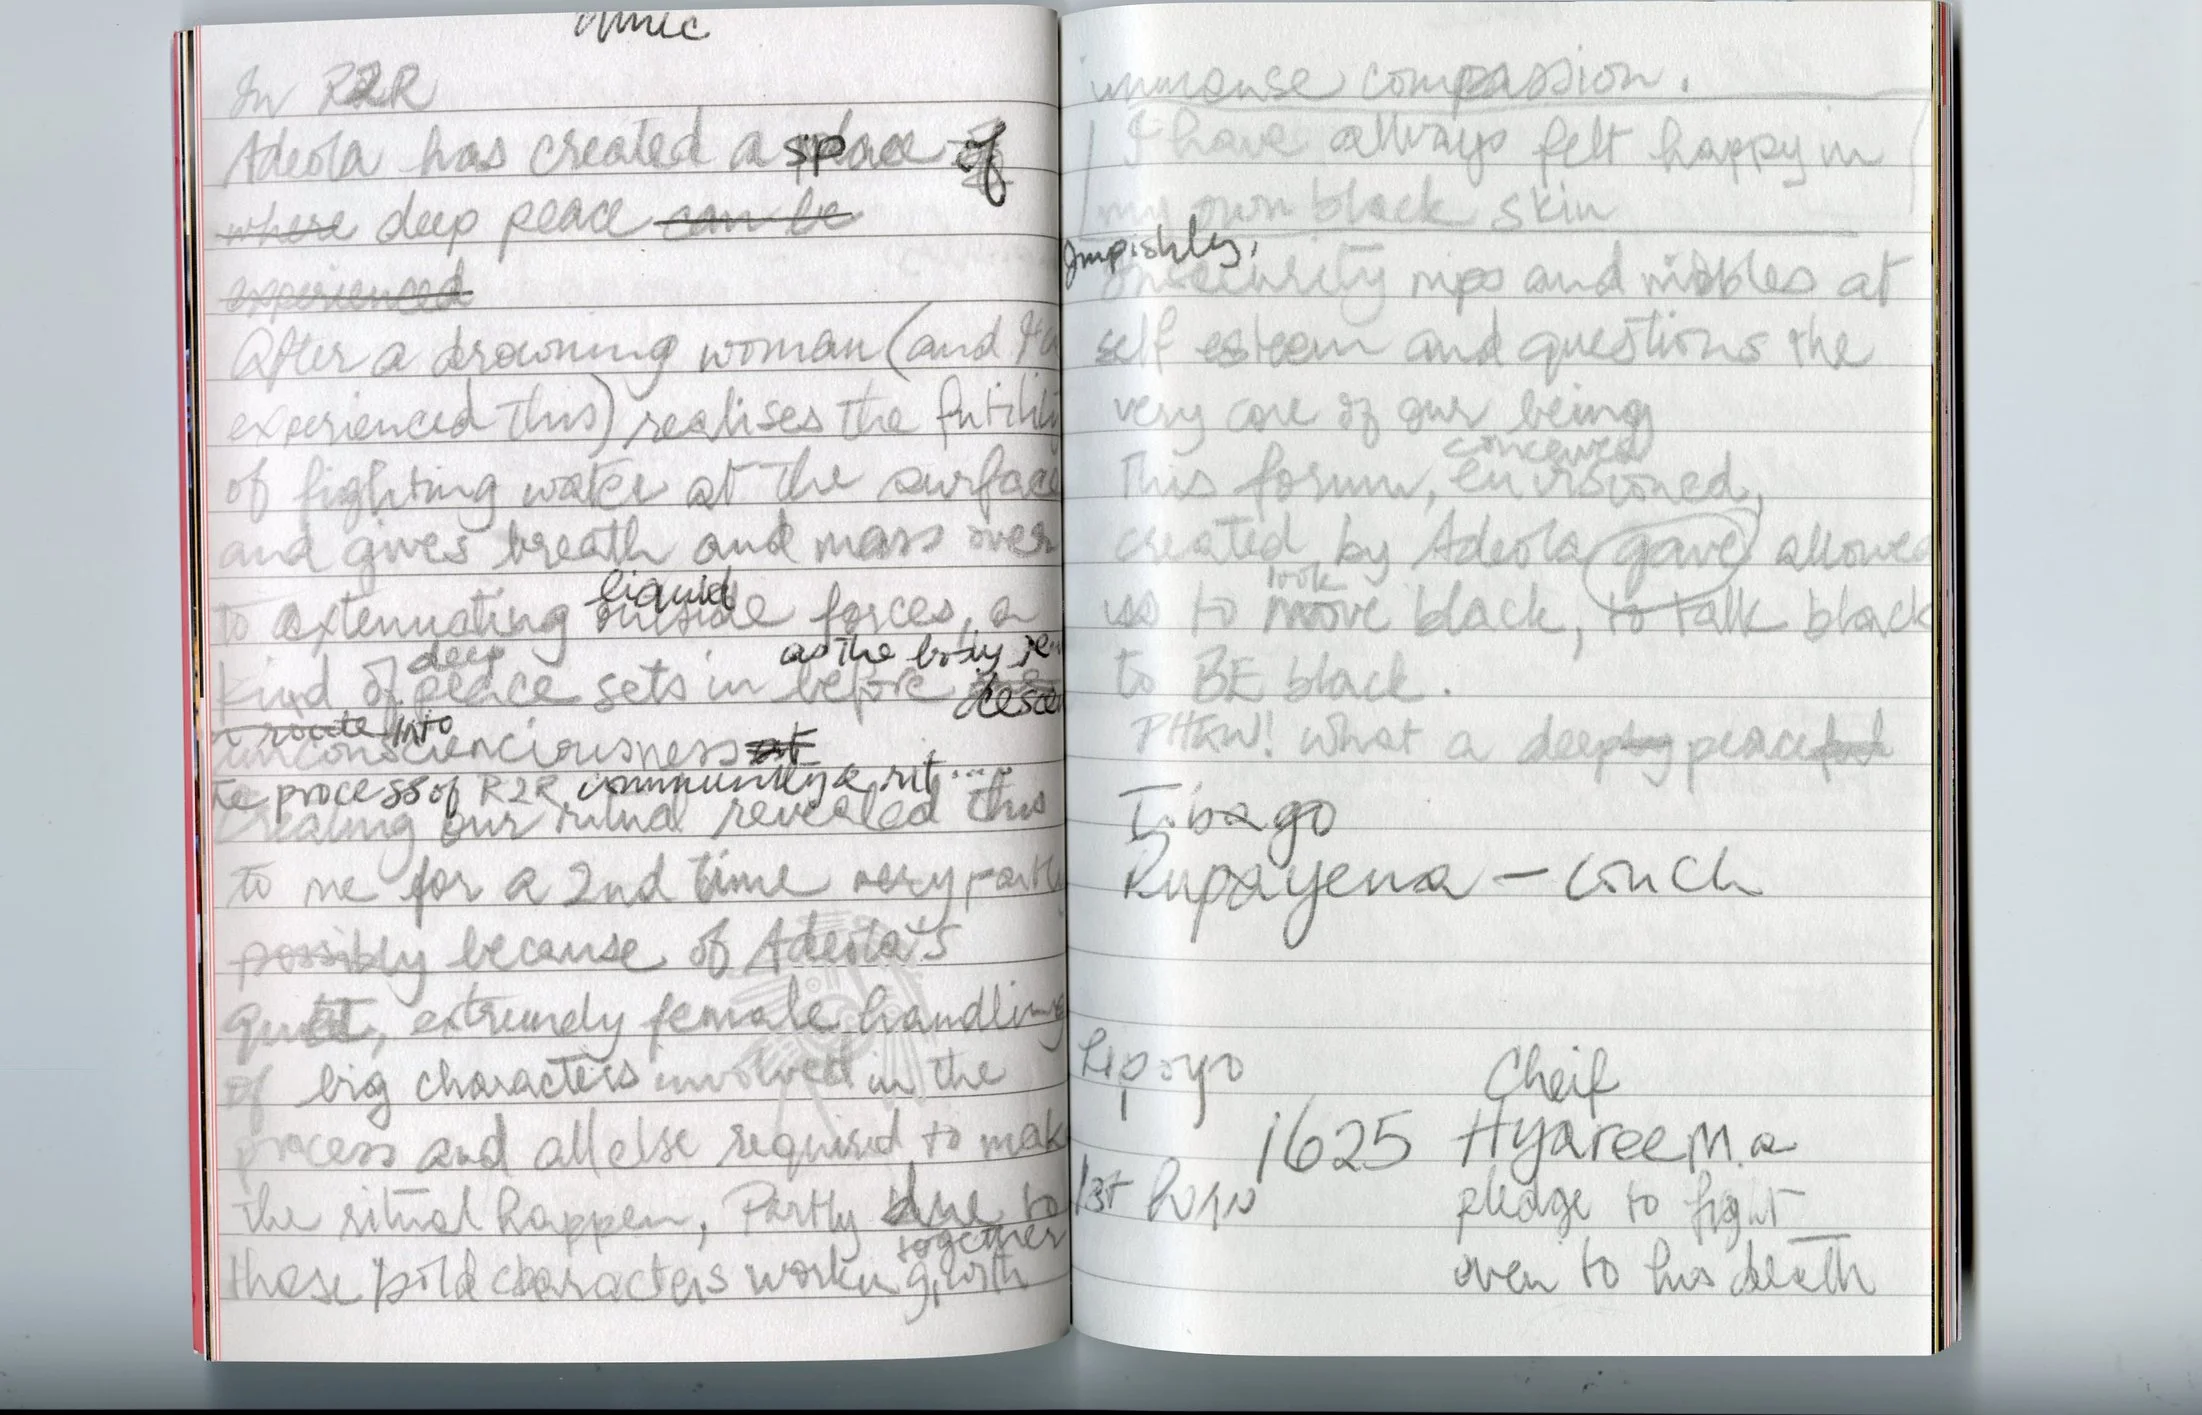 In R2R
Adeola has created a space of
where deep peace can be
experienced
After a drowning woman (and I
experienced this) realises the futility
of fighting water at the surface
and gives breath and mass over
liquid
to extenuating outside forces, a
deep as the body
kind of peace sets in before
a route into
unconscienciousness at
the process of R2R community & rit...
creating our ritual revealed this
to me for a 2nd time very partly
possibly because of Adeola's
quiet, extremely female handling
of big characters involved in the
process and all else required to make
the ritual happen, Partly due to
together
these bold characters working, with
immense compassion.
I have allways felt happy in
my own black skin
Impishly,
Insecurity nips and nibbles at
self esteem and questions the
very core of our being
conceived
This forum, envisioned,
created by Adeola gave allowed
look
us to move black, to talk black
to BE black.
PHEW! What a deeply peaceful
Tobago
Rupayena – conch
Cheif
1625 Hyareema
1st
pledge to fight
even to his death